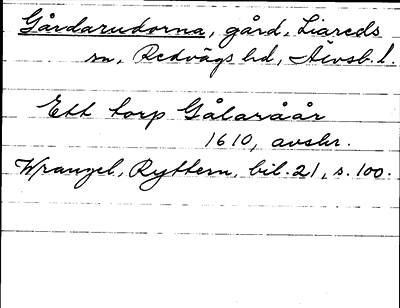 Gårdarudorna, gård, Liareds
sn, Redvägs hd, Älvsb. l.
Ett torp Gålaråår
1610, avskr.
Wrangel, Ryttern, bil. 21, s. 100.